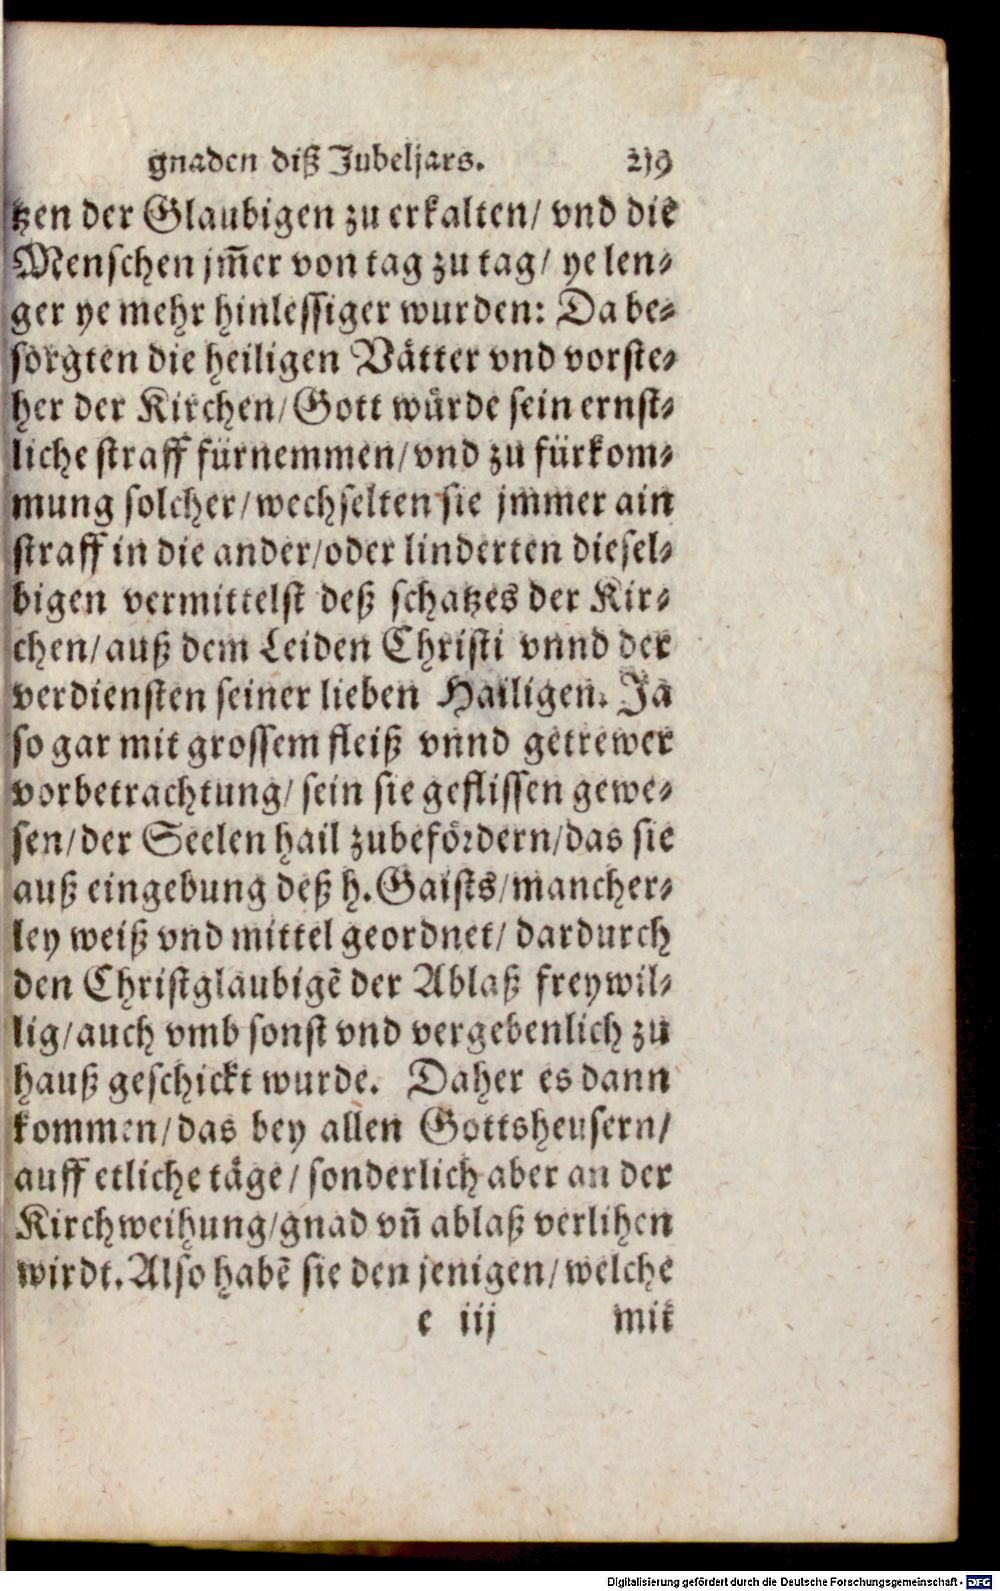 gnaden diß Jubeljars. 219
tzen der Glaubigen zu erkalten/ vnd die
Menschen jm̃er von tag zu tag/ ye len⸗
ger ye mehr hinlessiger wurden: Da be⸗
sorgten die heiligen Vätter vnd vorste⸗
her der Kirchen/Gott würde sein ernst⸗
liche straff fürnemmen/vnd zu fürkom⸗
mung solcher/wechselten sie jmmer ain
straff in die ander/oder linderten diesel⸗
bigen vermittelst deß schatzes der Kir⸗
chen/auß dem Leiden Christi vnnd der
verdiensten seiner lieben Hailigen. Ja
so gar mit grossem fleiß vnnd getrewer
vorbetrachtung/ sein sie geflissen gewe⸗
sen/der Seelen hail zubefördern/das sie
auß eingebung deß h. Gaists/mancher⸗
ley weiß vnd mittel geordnet/ dardurch
den Christglaubigẽ der Ablaß freywil⸗
lig/auch vmb sonst vnd vergebenlich zu
hauß geschickt wurde. Daher es dann
kommen/das bey allen Gottsheusern/
auff etliche täge/ sonderlich aber an der
Kirchweihung/gnad vñ ablaß verlihen
wirdt. Also habẽ sie den jenigen/welche
e iij mit
Digitalisierung gefördert durch die Deutsche Forschungsgemeinschaft - DFG